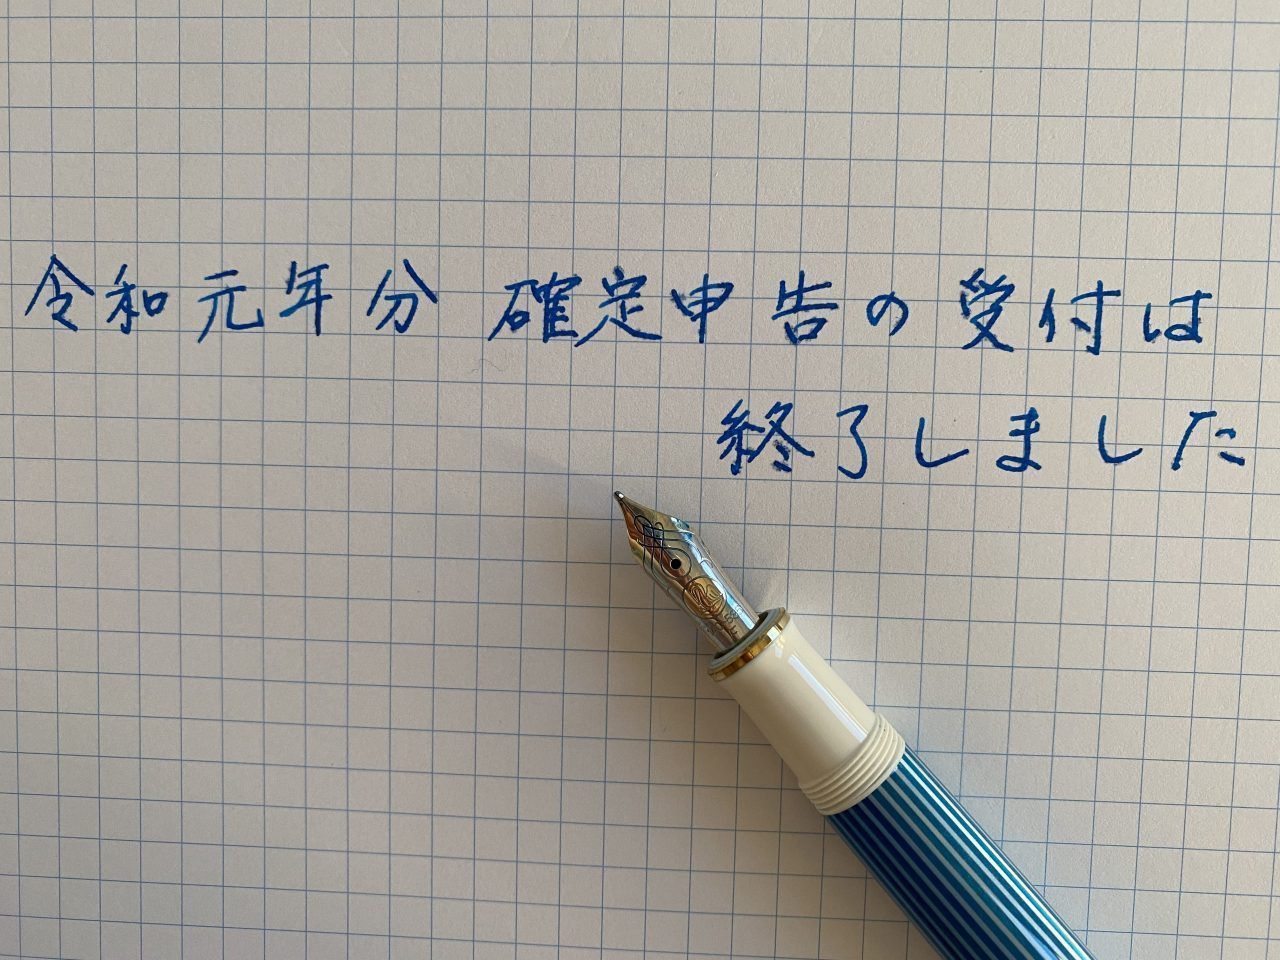 令和元年分 確定申告の受付は
終了しました